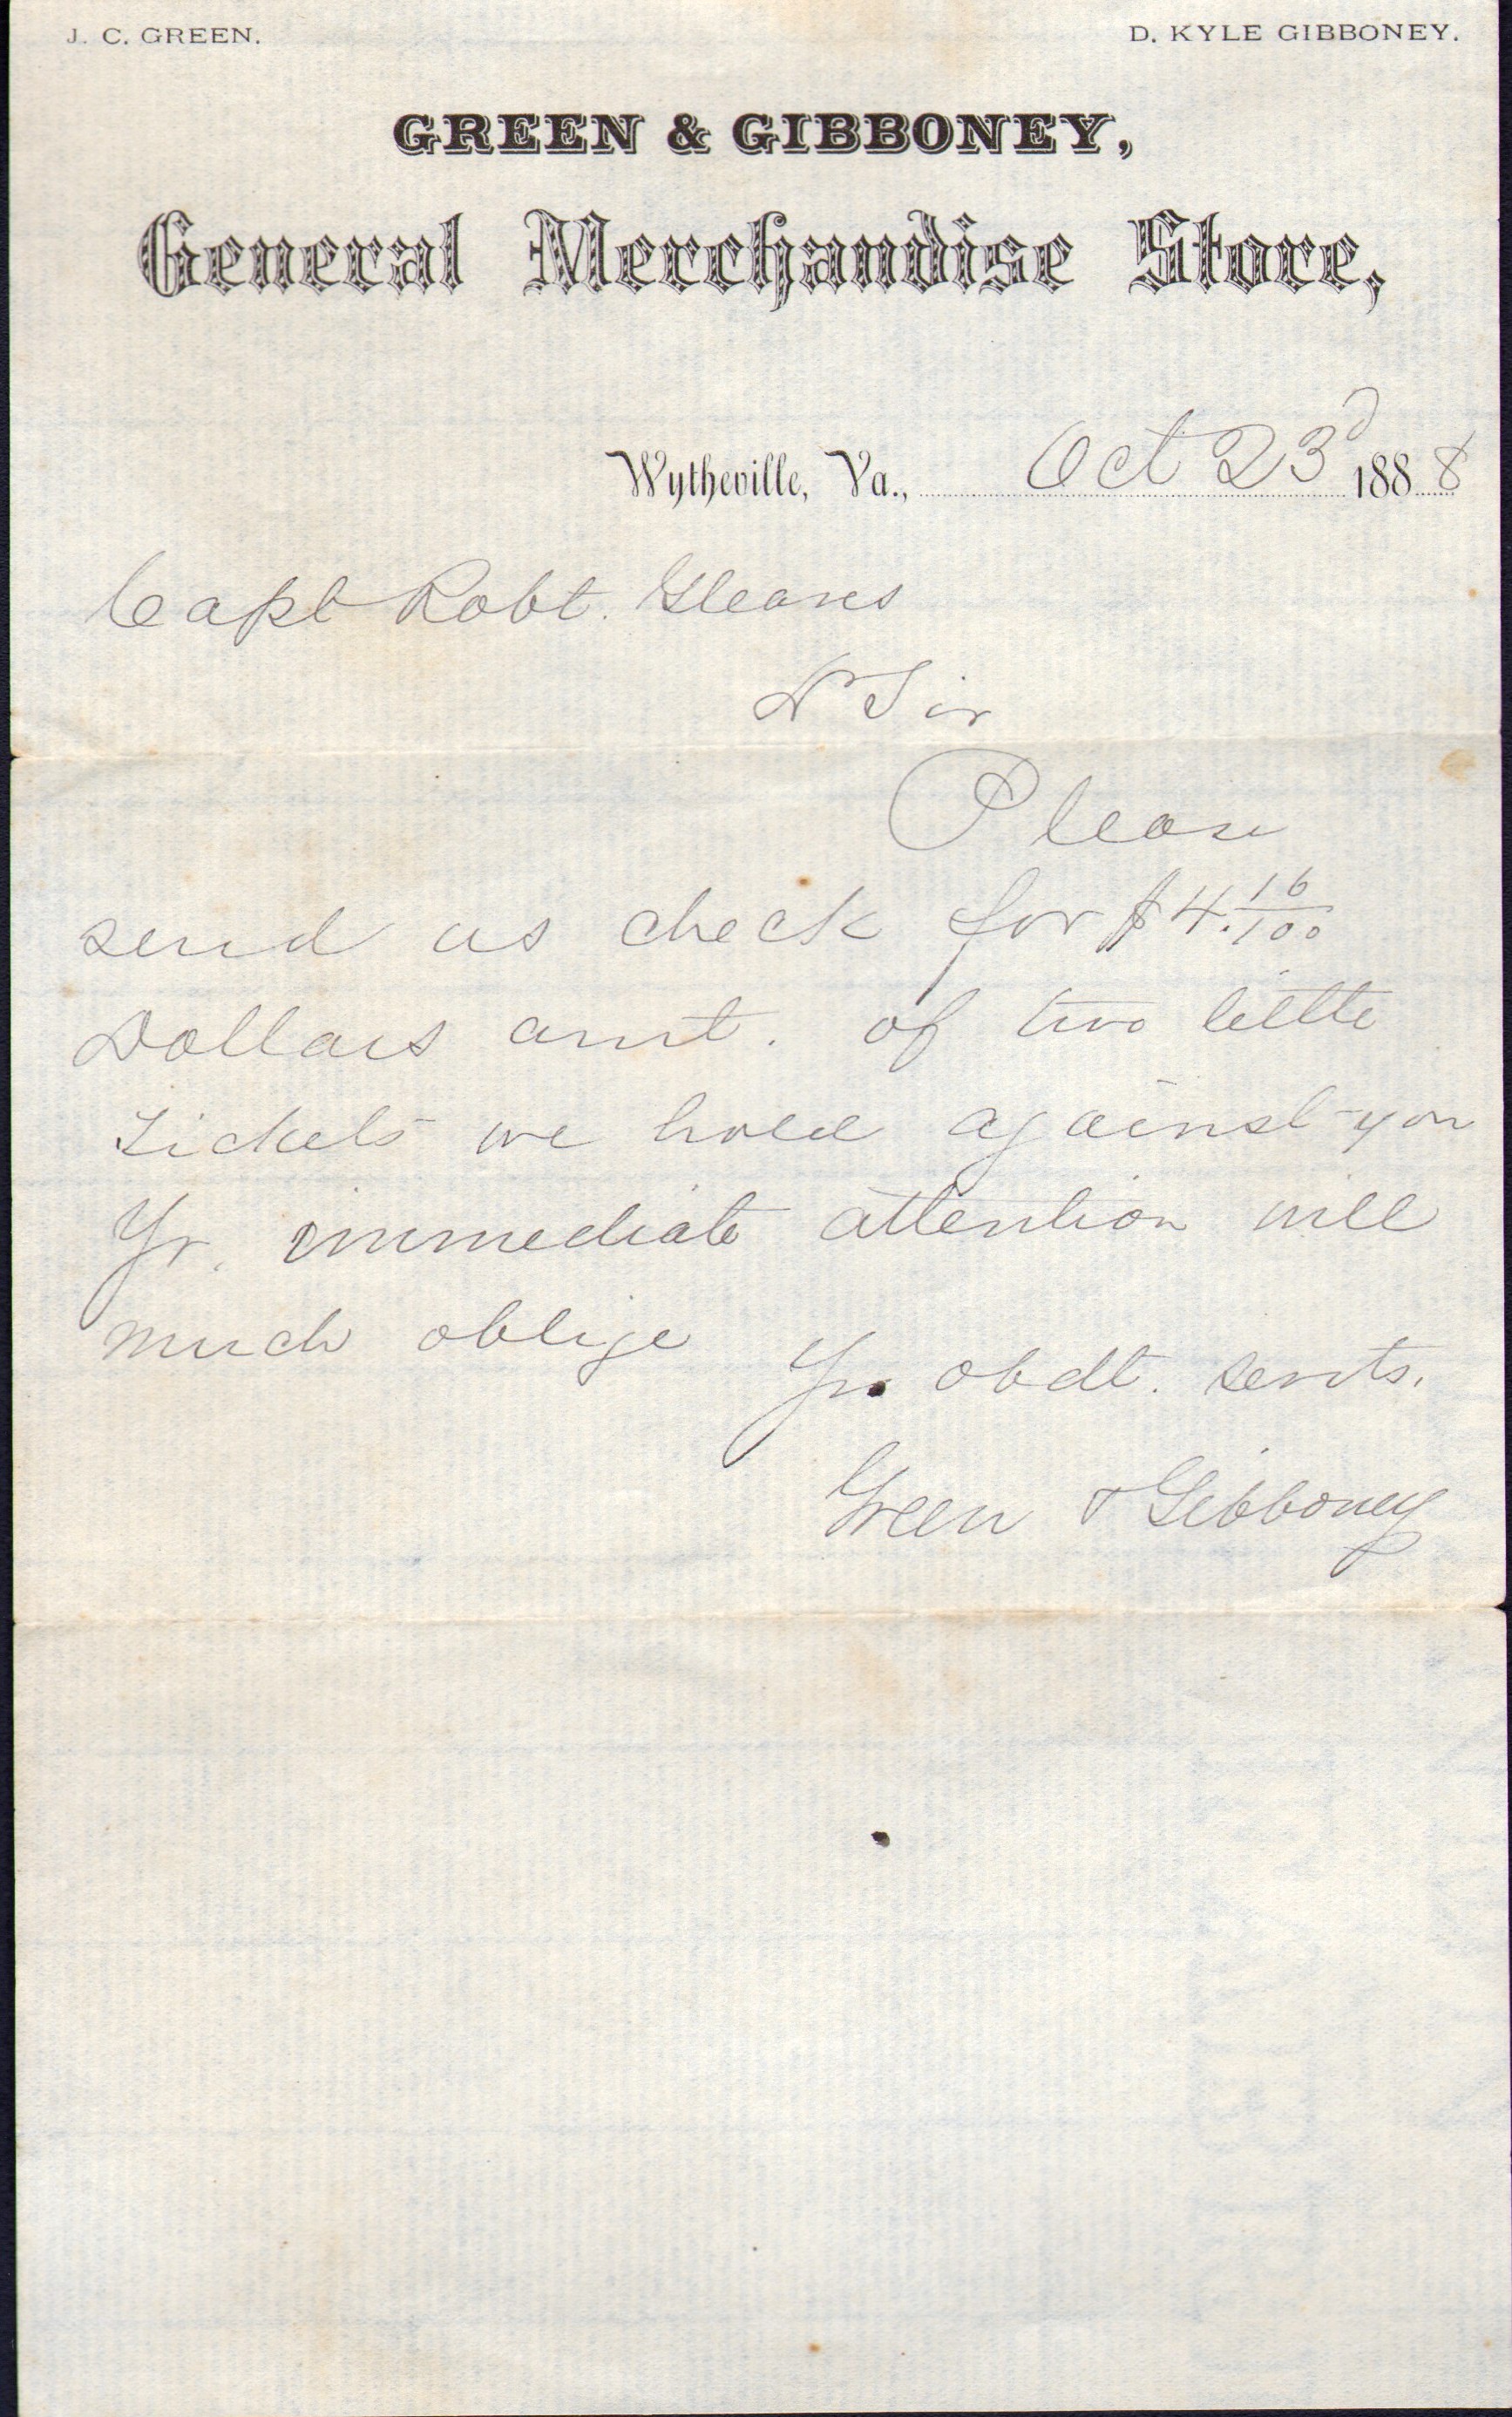 J. C. GREEN. D. KYLE GIBBONEY.
GREEN & GIBBONEY,
General Merchandise Store,
Wytheville, Va., Oct 23d 1888
Capt Robt. Gleaves
Dr Sir
Please
send us check for $4.16/100
Dollars amt. of two little
tickets we hold against you
Yr. immediate attention will
much oblige
Yr. obdt. servts.
Green & Gibboney